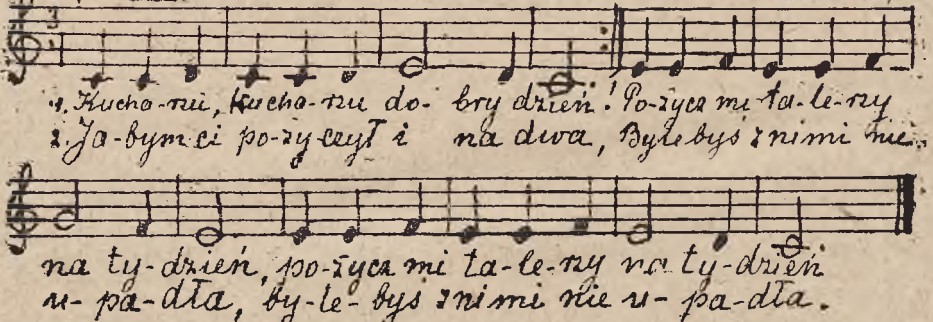 1. Kucha-rzu, kucha-rzu do-bry dzień! Po-życz mi ta-le-rzy
2. Ja-bym ci po-ży-czył i na dwa, Byłebyś z nimi nie
na ty-dzień, po-życz mi ta-le-rzy na ty-dzień
u-pa-dła, by-łe-byś z nimi nie u-pa-dła.